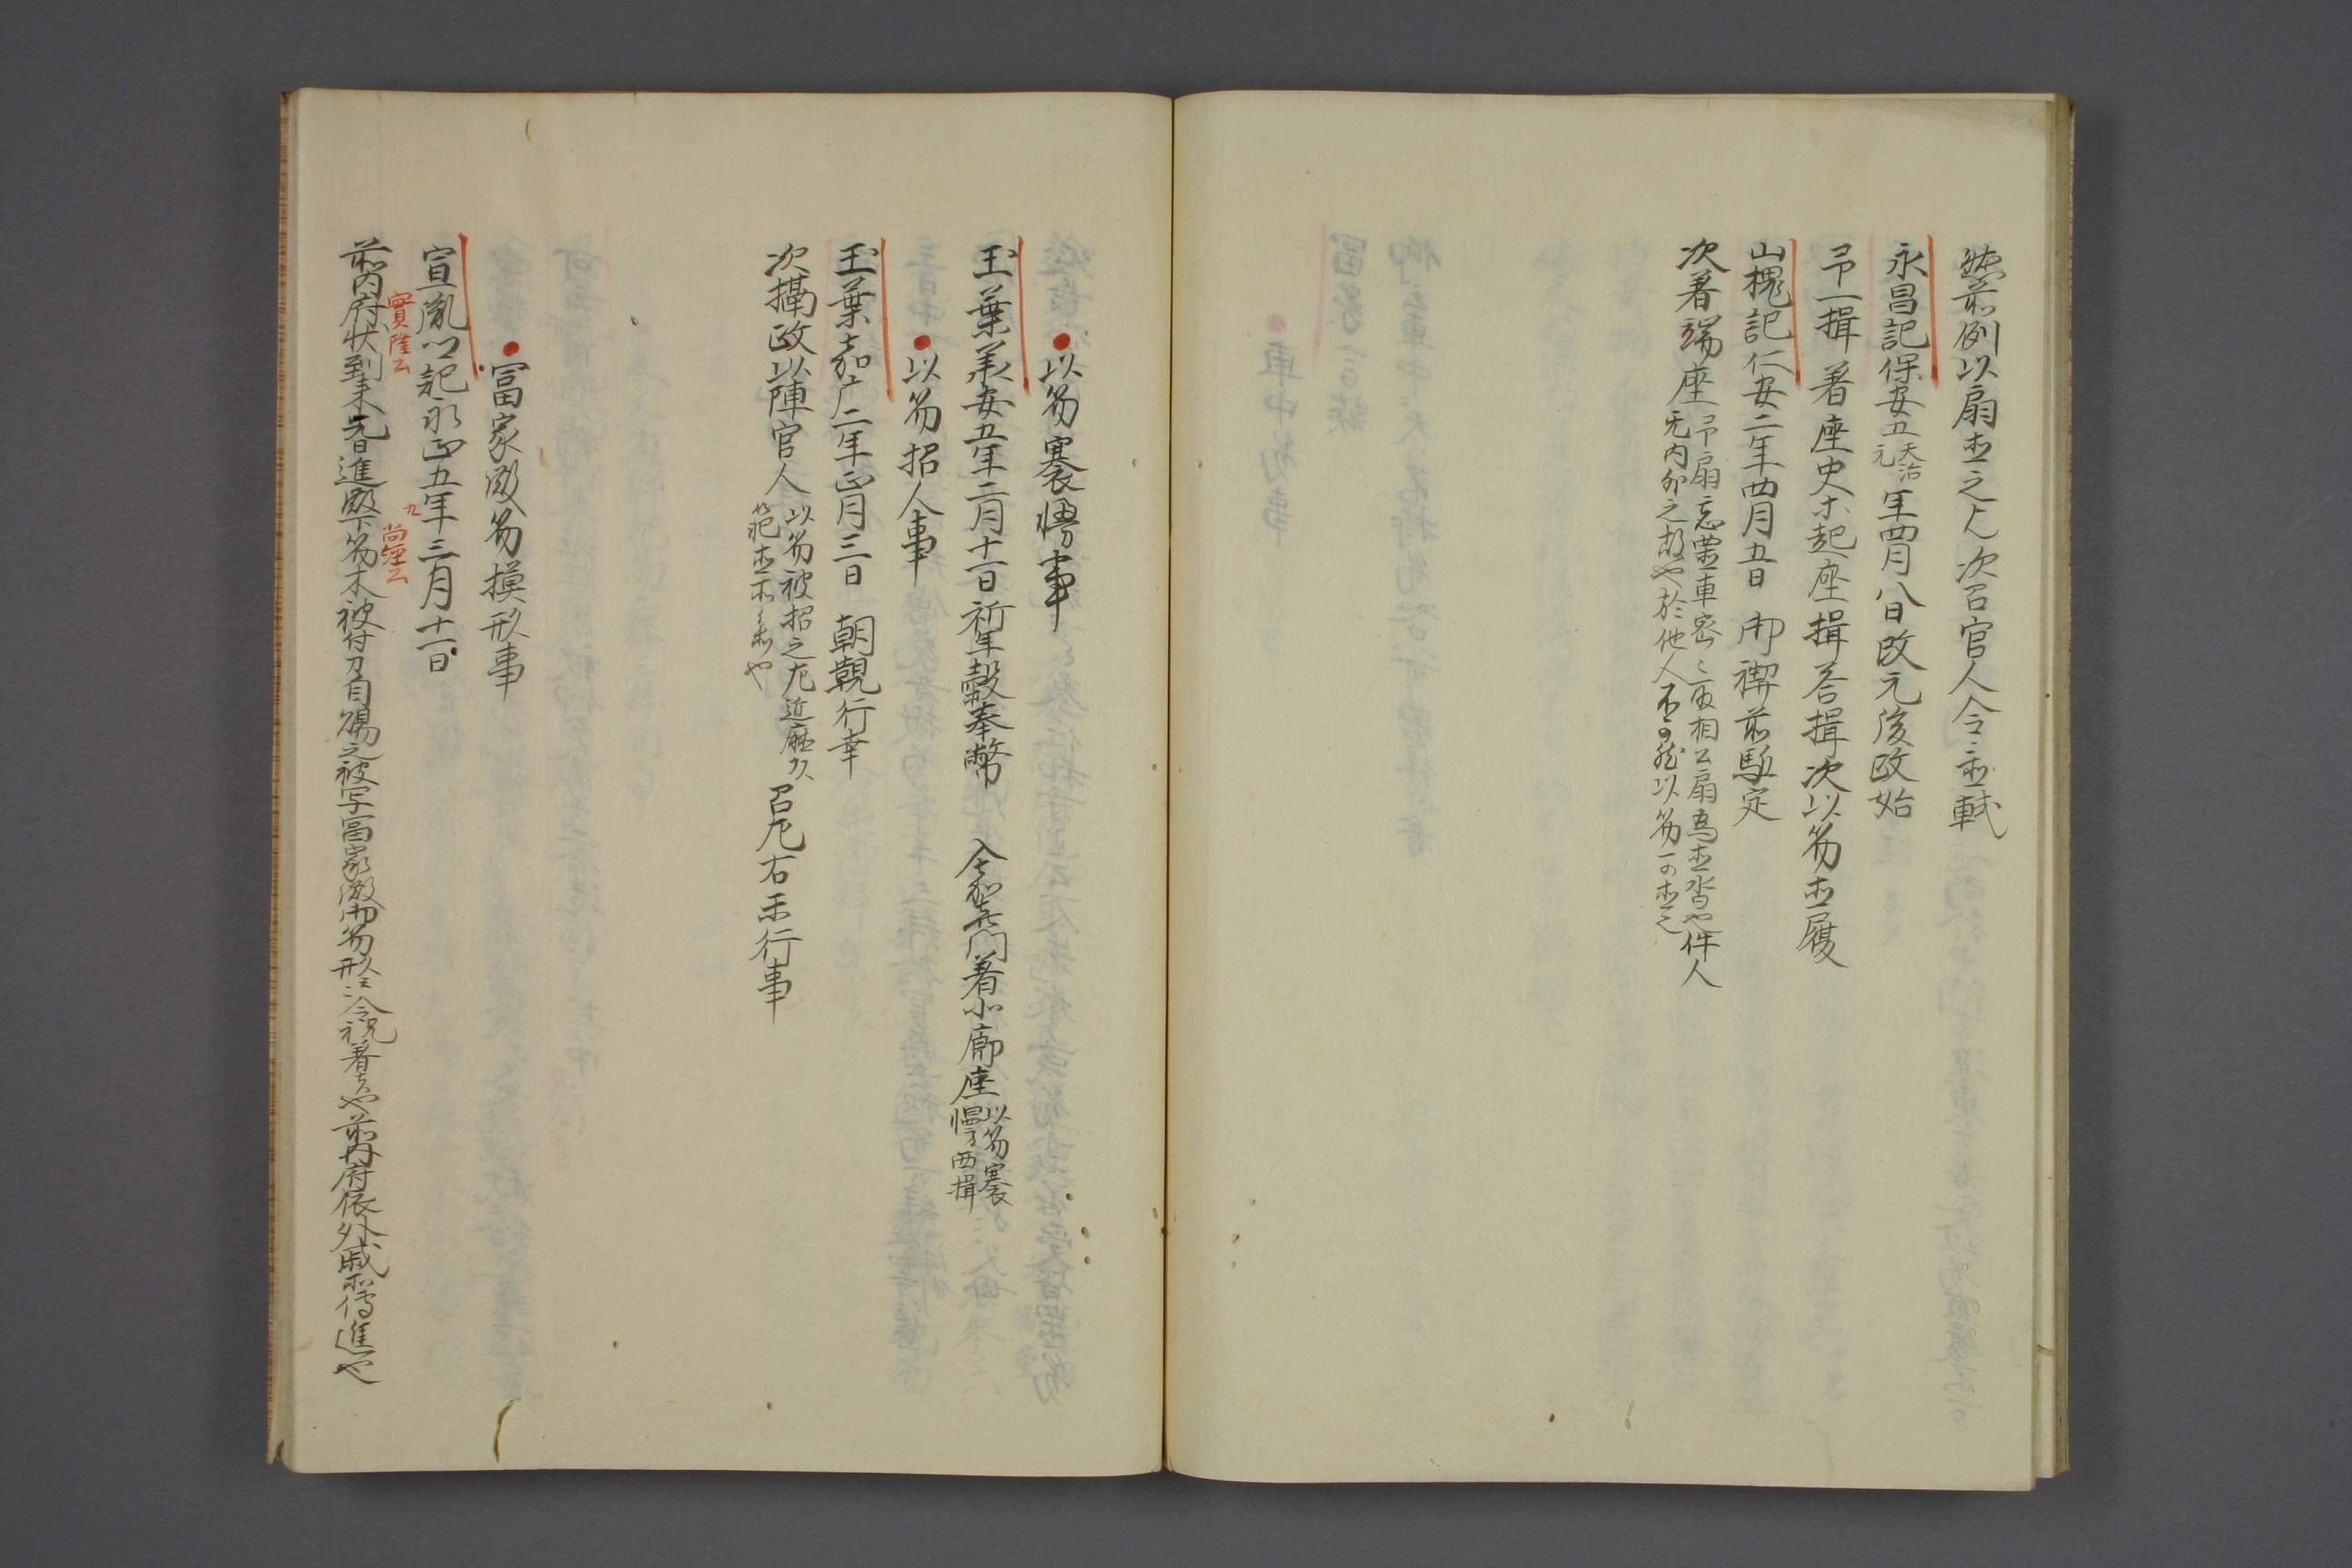 然前例以扇直之人次召官人令立軾
永昌記保安五天治元年四月八日改元後政始
一揖着座史未起座揖答揖次以笏直履
山槐記仁安二年四月五日御禊前駈定
次着端座
扇忘置車密々
相公扇為直沓也件人
无内外之故也於他人不可然以笏可直之
以笏褰幔事
玉葉承安五年二月十一日祈年穀奉幣 入令着北廊座以笏褰幔西揖
以笏招人事
玉葉嘉応二年正月三日朝覲行幸
次摂政以陣官人以笏被招之左近府召左右行事
富家殿笏摸形事
宣胤卿記永正五年三月十一日
九
實隆公
尚経公
前内府状到来先日進殿下笏木被付力自愛之被写富家殿御笏形云々令祝着者也前内府依外戚所伝進也